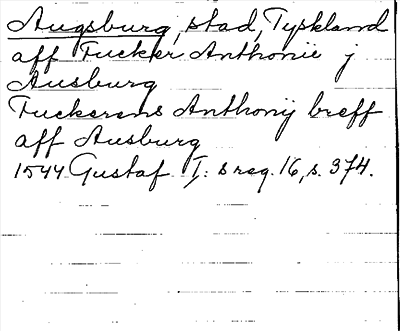 Augsburg, stad, Tyskland
aff Fucker Anthonie j
Ausburg
Fuckerens Anthonij breff
aff Ausburg
1544 Gustaf I: s reg. 16, s. 374.